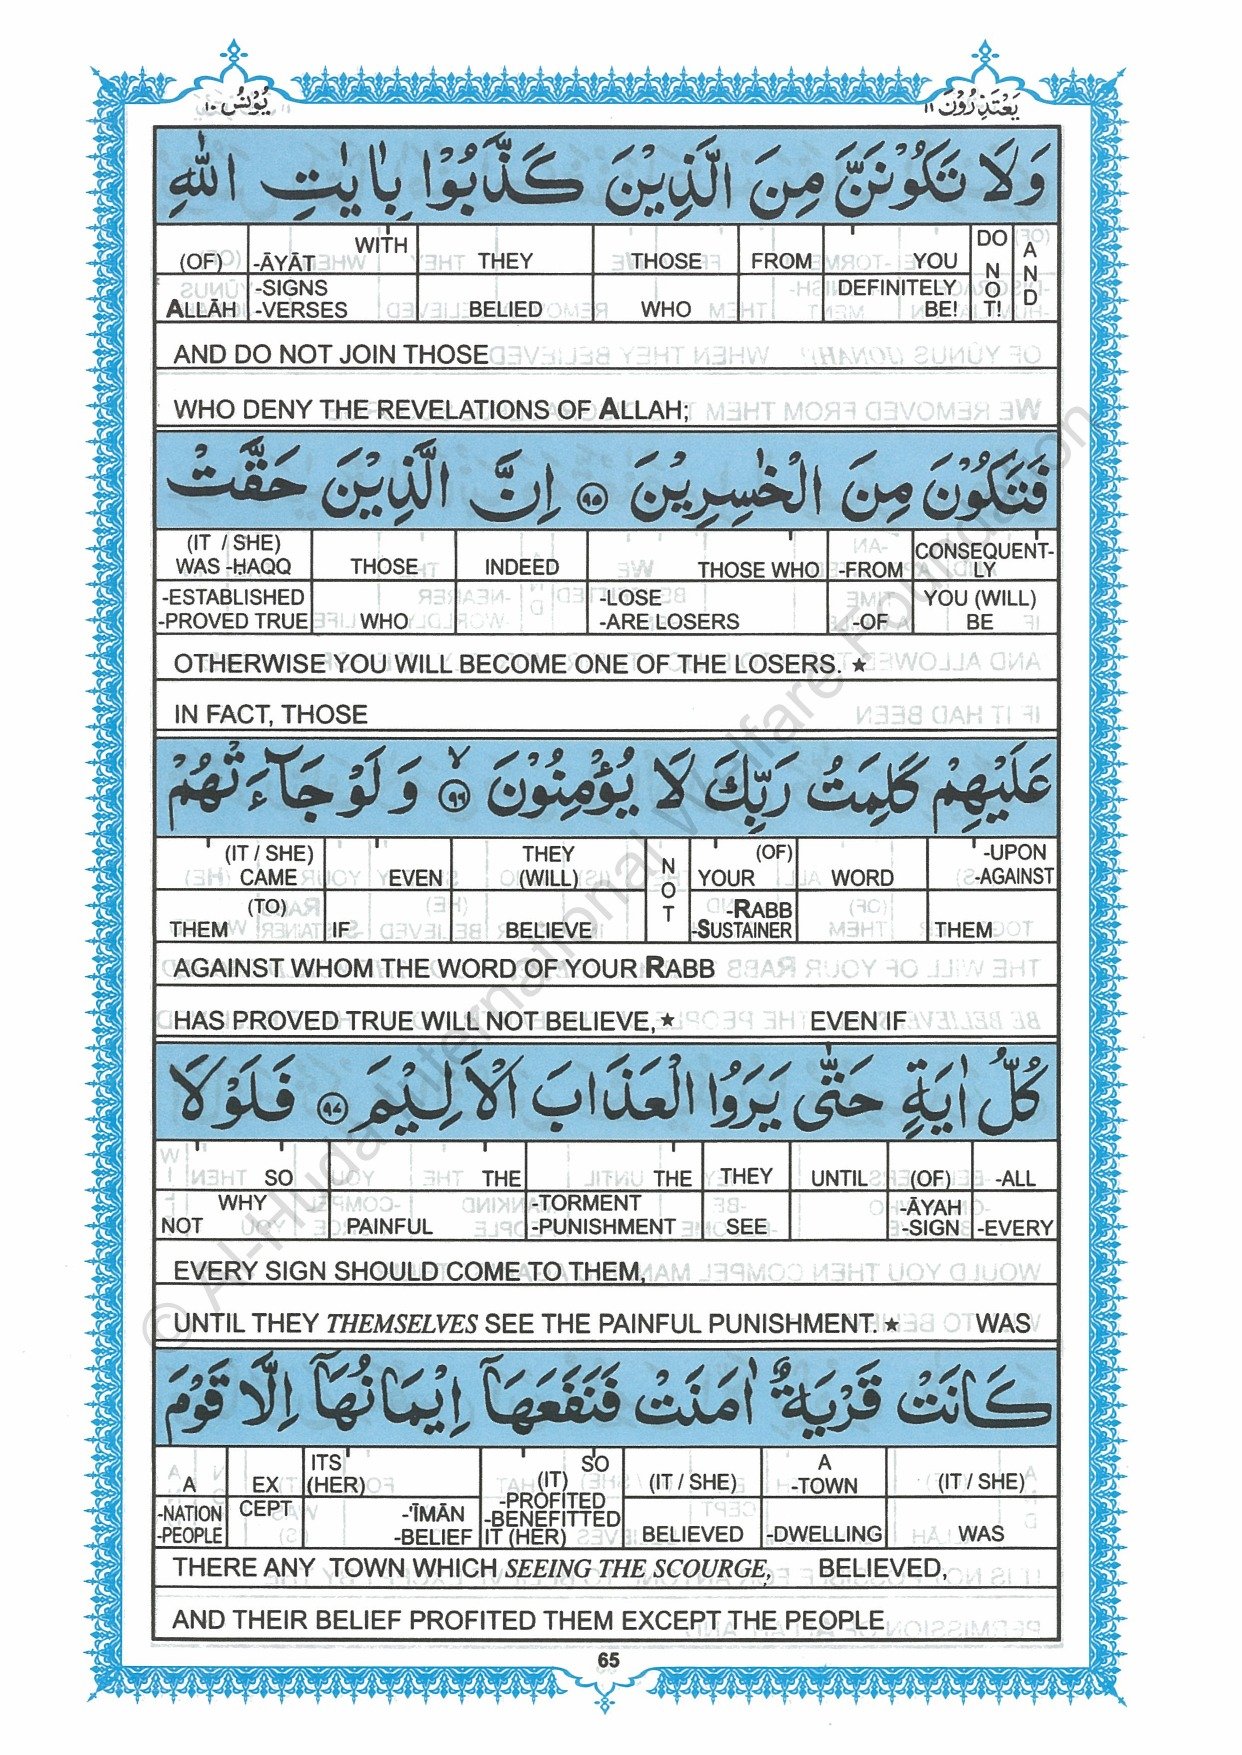 يُوْنُس ١٠
يَعْتَذِرُوْنَ ١١
وَلَا تَكُوْنَنَّ مِنَ الَّذِيْنَ كَذَّبُوْا بِاٰيٰتِ اللّٰهِ
(OF) -ĀYĀT WITH THEY THOSE FROM YOU DO NOT! AND
ALLĀH -SIGNS -VERSES BELIED WHO DEFINITELY BE!
AND DO NOT JOIN THOSE
WHO DENY THE REVELATIONS OF ALLAH;
فَتَكُوْنَ مِنَ الْخٰسِرِيْنَ ٩٥ اِنَّ الَّذِيْنَ حَقَّتْ
(IT / SHE) WAS -ḤAQQ THOSE INDEED THOSE WHO -FROM CONSEQUENT-LY
-ESTABLISHED -PROVED TRUE WHO -LOSE -ARE LOSERS -OF YOU (WILL) BE
OTHERWISE YOU WILL BECOME ONE OF THE LOSERS. ★
IN FACT, THOSE
عَلَيْهِمْ كَلِمَتُ رَبِّكَ لَا يُؤْمِنُوْنَ ٩٦ وَلَوْ جَآءَتْهُمْ
(IT / SHE) CAME EVEN THEY (WILL) NOT YOUR (OF) WORD -UPON -AGAINST
THEM (TO) IF BELIEVE -RABB -SUSTAINER THEM
AGAINST WHOM THE WORD OF YOUR RABB
HAS PROVED TRUE WILL NOT BELIEVE, ★ EVEN IF
كُلُّ اٰيَةٍ حَتّٰى يَرَوُا الْعَذَابَ الْاَلِيْمَ ٩٧ فَلَوْلَا
SO THE THE THEY UNTIL (OF) -ALL
NOT WHY PAINFUL -TORMENT -PUNISHMENT SEE -ĀYAH -SIGN -EVERY
EVERY SIGN SHOULD COME TO THEM,
UNTIL THEY THEMSELVES SEE THE PAINFUL PUNISHMENT. ★ WAS
كَانَتْ قَرْيَةٌ اٰمَنَتْ فَنَفَعَهَآ اِيْمَانُهَآ اِلَّا قَوْمَ
A EXCEPT ITS (HER) SO (IT) (IT / SHE) A -TOWN (IT / SHE)
-NATION -PEOPLE -'ĪMĀN -BELIEF -PROFITED -BENEFITTED IT (HER) BELIEVED -DWELLING WAS
THERE ANY TOWN WHICH SEEING THE SCOURGE, BELIEVED,
AND THEIR BELIEF PROFITED THEM EXCEPT THE PEOPLE
65
© Al-Huda International Welfare Foundation